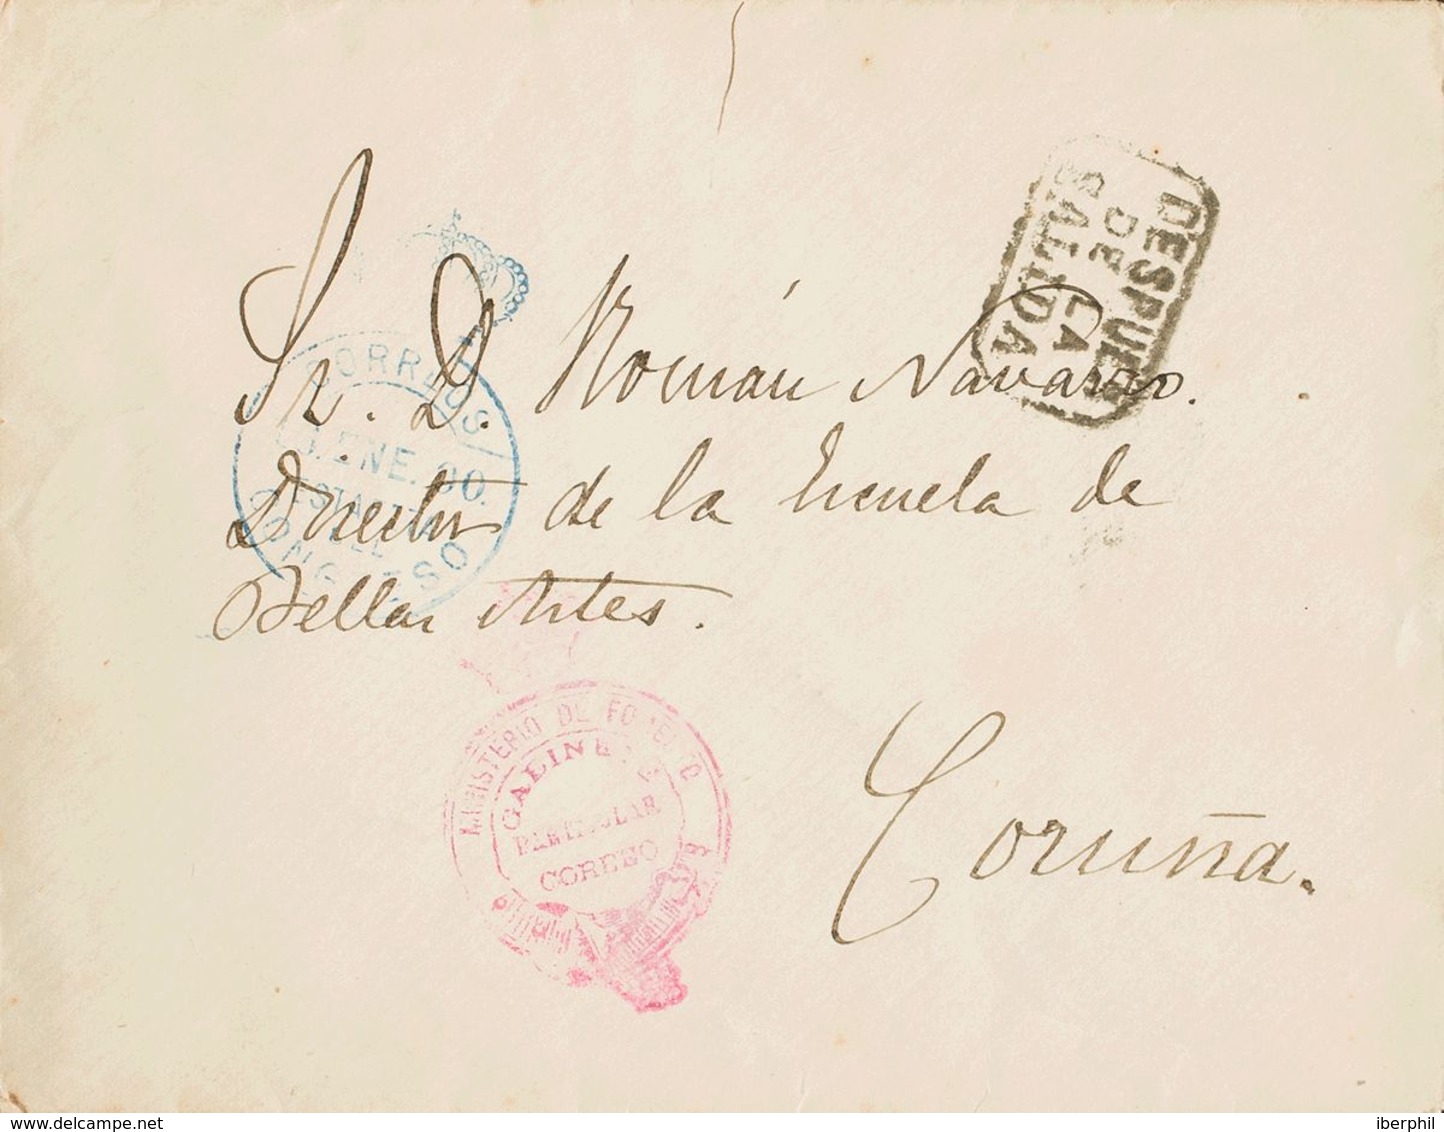 DESPUES
DE LA
SALIDA
Sr. D. Román Navarro.
Director de la Escuela de
Bellas Artes.
Coruña.
CORREOS
ENE. 00.
MINISTERIO DE FOMENTO
GABINETE
PARTICULAR
CORREO
www.delcampe.net
iberphil